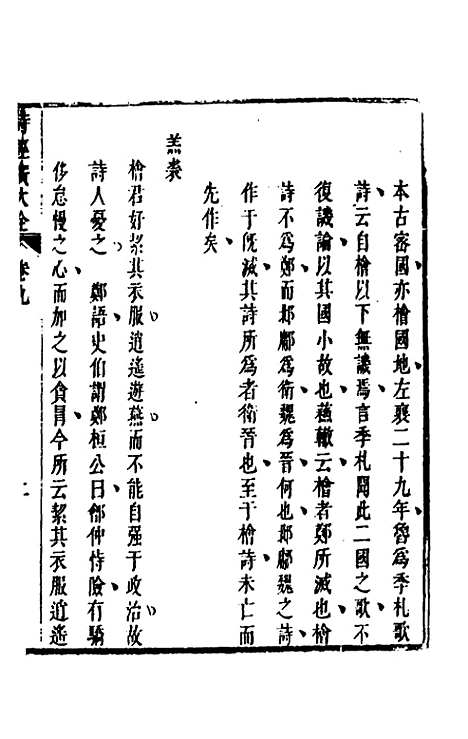 本古密國亦檜國地左襄二十九年魯爲季札歌
詩云自檜以下無譏焉言季札聞此二國之歌不
復譏論以其國小故也蘓轍云檜者鄭所滅也檜
詩不爲鄭而邶鄘爲衛魏爲晉何也邶鄘魏之詩
作于旣滅其詩所爲者衛晉也至于檜詩未亡而
先作矣
羔裘
檜君好絜其衣服逍遙遊燕而不能自强于政治故
詩人憂之 鄭語史伯謂鄭桓公曰鄶仲恃險有驕
侈怠慢之心而加之以貪冒今所云絜其衣服逍遙
詩經廣大全 卷九